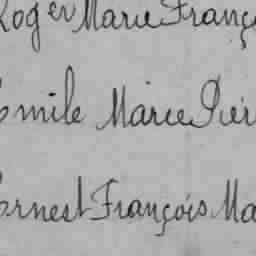 Roger Marie Franç
Emile Marie Pier
Ernest François Ma